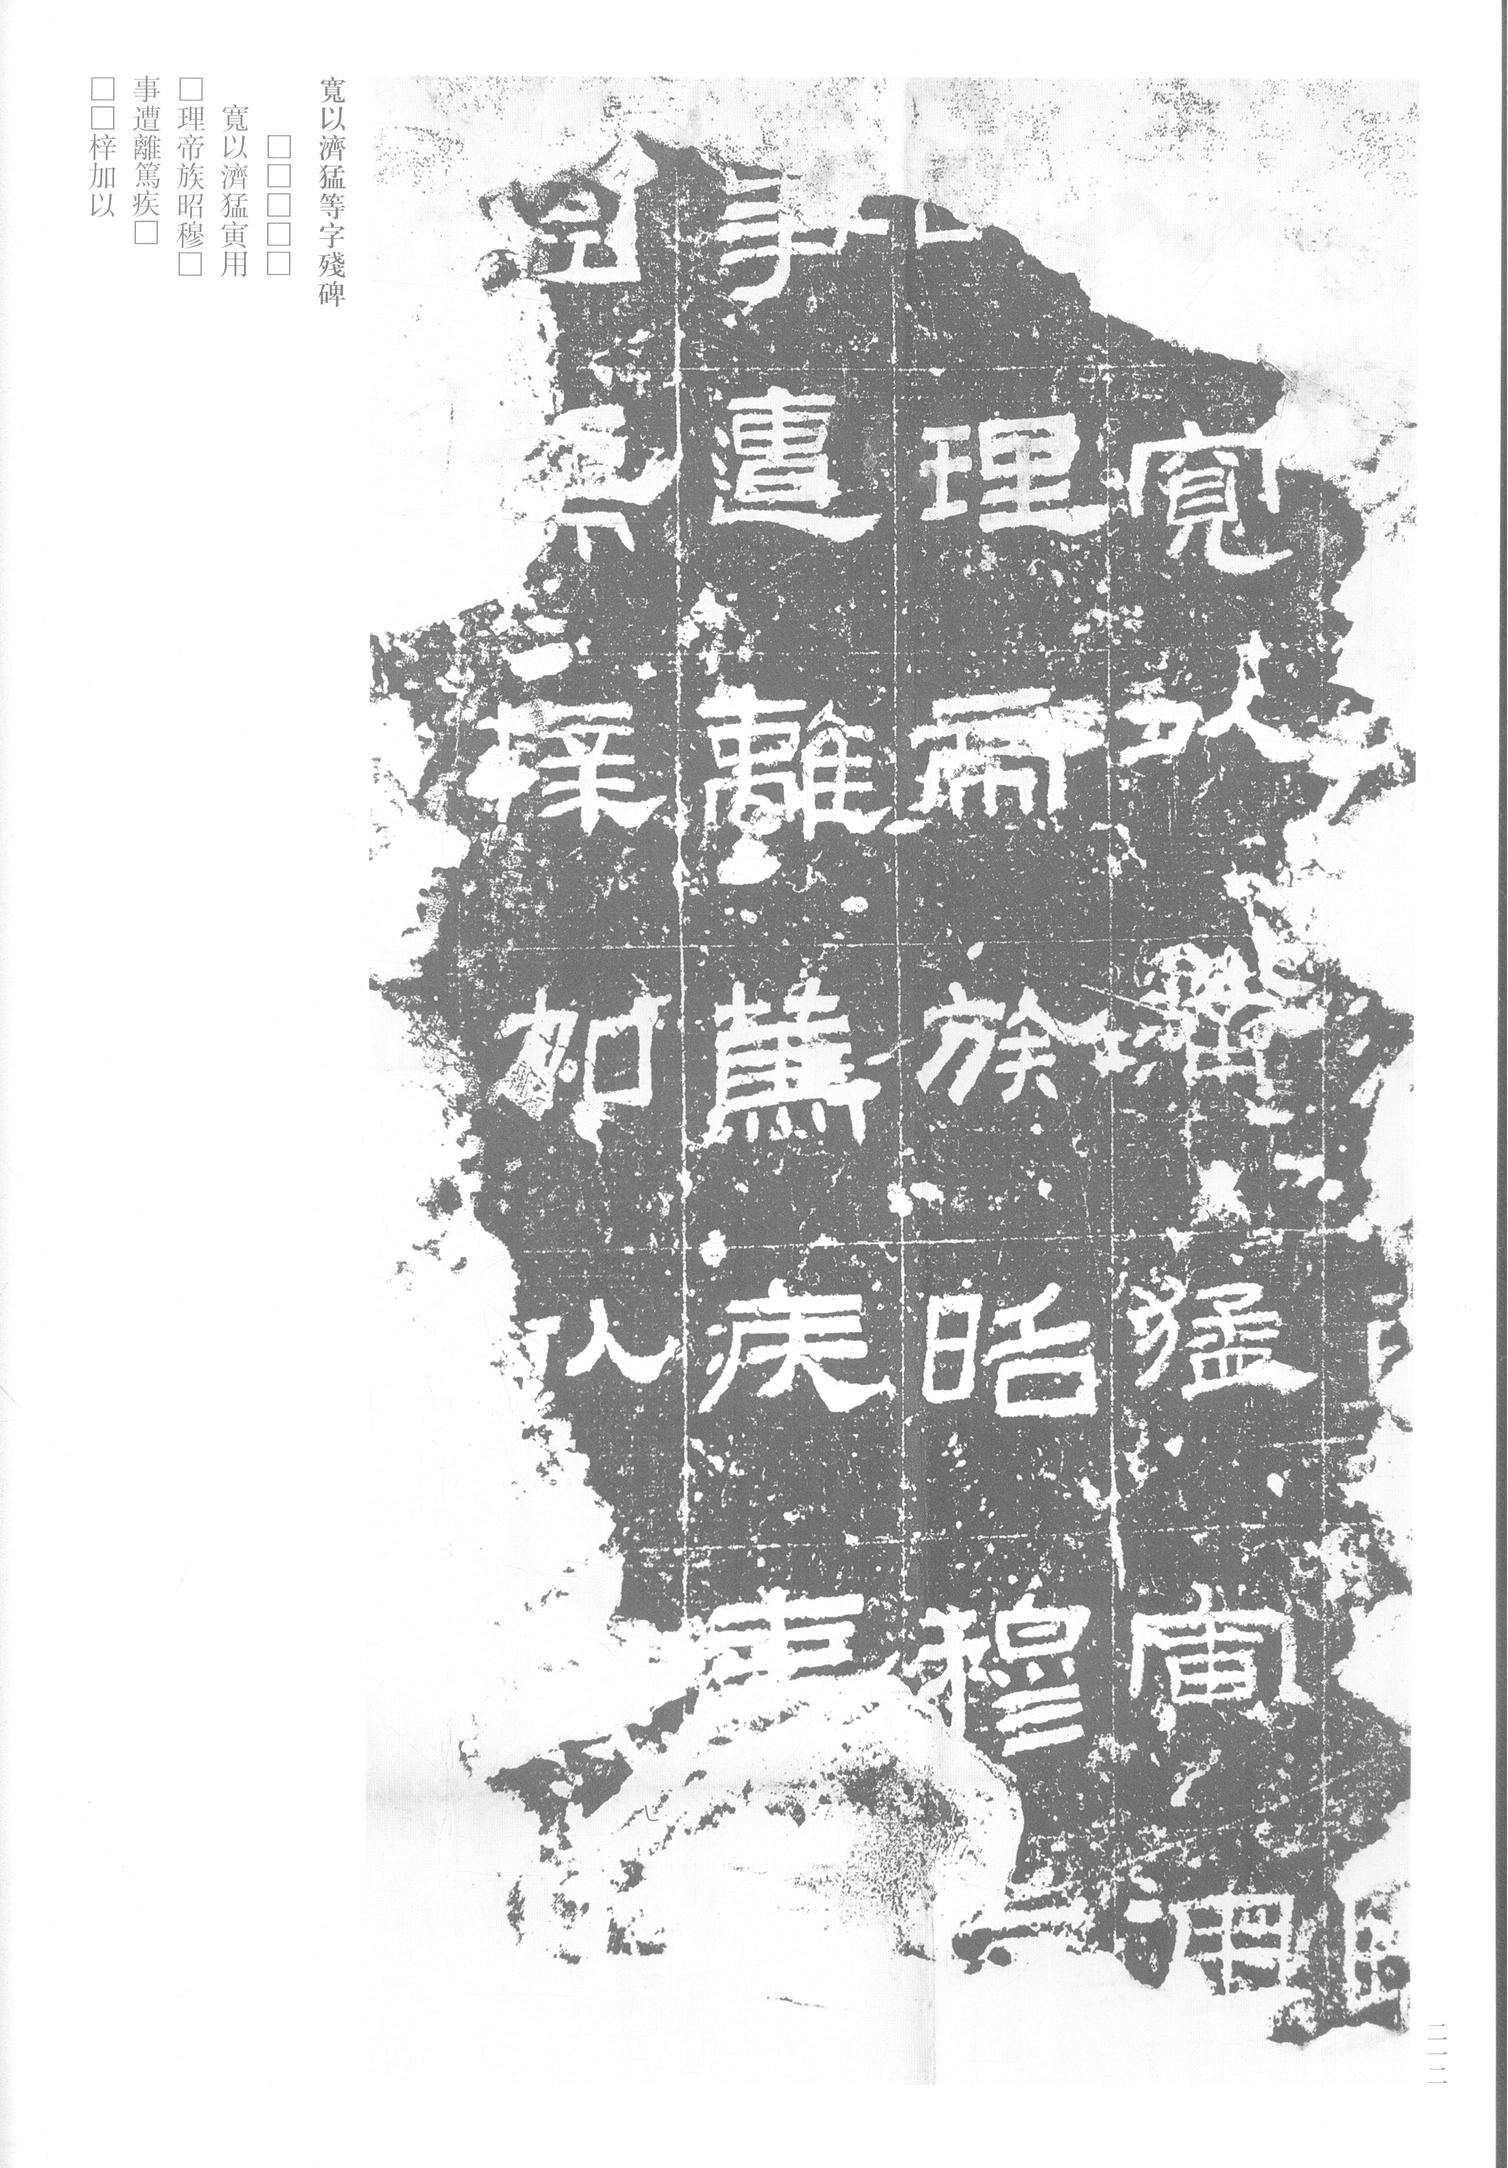 寬以濟猛等字殘碑
□□□□□
寬以濟猛寅用
□理帝族昭穆□
事遭離篤疾□
□□梓加以
寬以濟猛寅用
理帝族昭穆
事遭離篤疾
梓加以
二一二